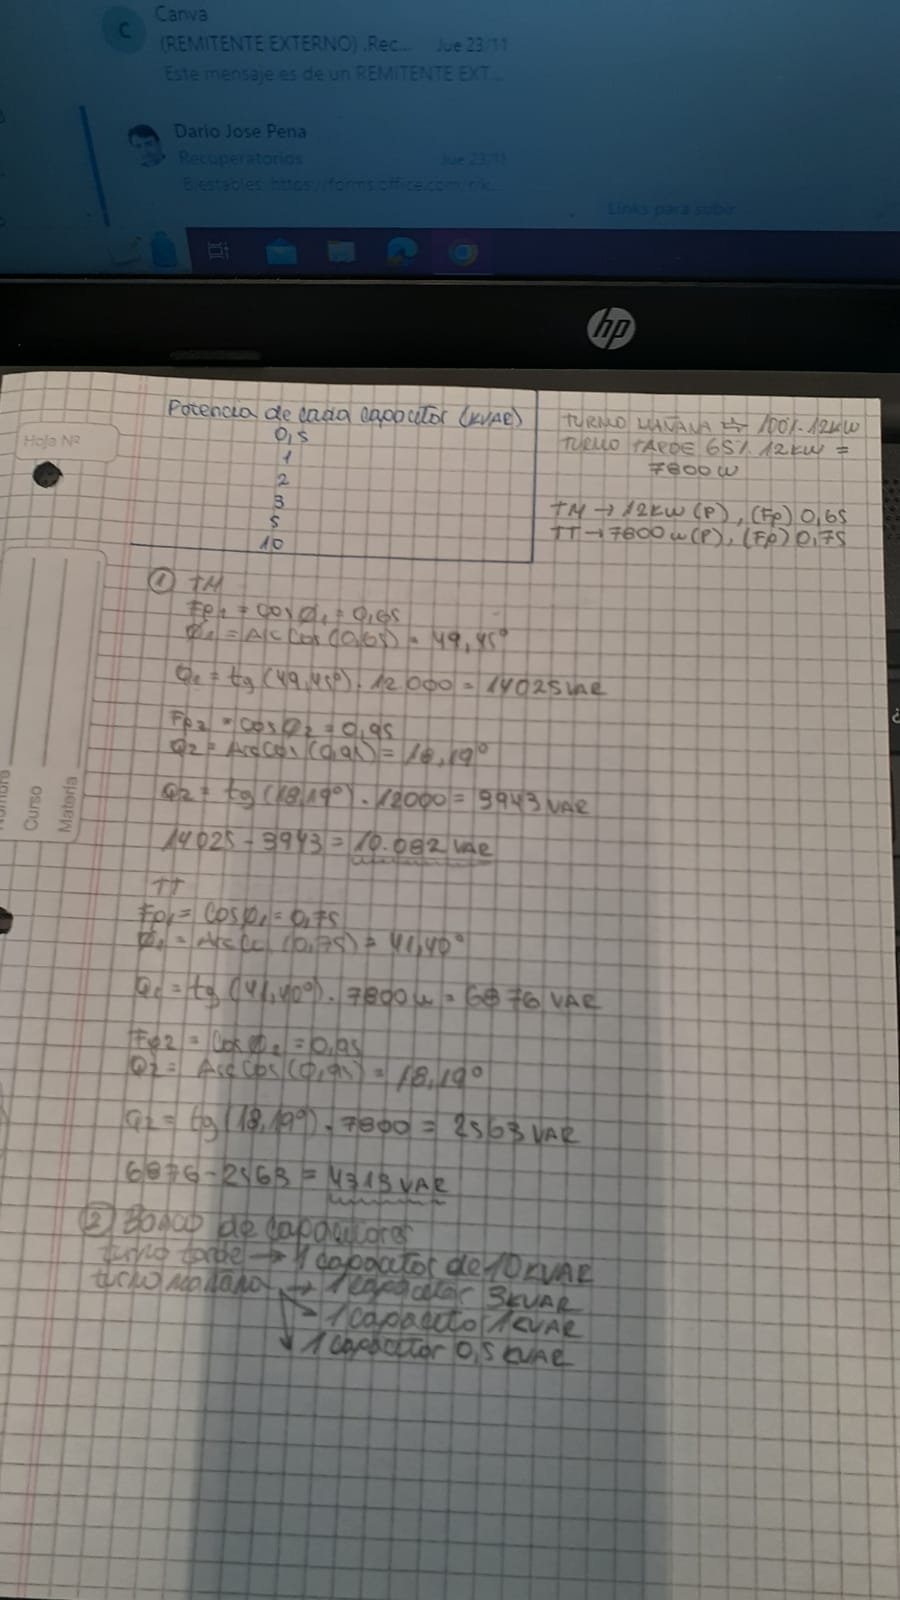 Canva
C
(REMITENTE EXTERNO) .Rec... Jue 23/11
Este mensaje es de un REMITENTE EXT...
Dario Jose Pena
Recuperatorios Jue 23/11
Biestables: https://forms.office.com/r/k...
Links para subir
hp
Hoja Nº
Curso
Materia
Potencia de cada capacitor (KVAR)
0,5
1
2
3
5
10
TURNO MAÑANA ⇒ 100%. 12KW
TURNO TARDE 65%. 12KW =
7800 W
TM → 12KW (P), (Fp) 0,65
TT → 7800 W (P), (Fp) 0,75
① TM
Fp1 = cos ϕ1 = 0,65
ϕ1 = Arc Cos (0,65) = 49,45°
Q1 = tg (49,45°) . 12000 = 14025 VAR
Fp2 = cos ϕ2 = 0,95
Q2 = Arc Cos (0,95) = 18,19°
Q2 = tg (18,19°) . 12000 = 3943 VAR
14025 - 3943 = 10.082 VAR
TT
Fp1 = Cos ϕ1 = 0,75
ϕ1 = Arc Cos (0,75) = 41,40°
Q1 = tg (41,40°) . 7800 W = 6876 VAR
Fp2 = Cos ϕ2 = 0,95
Q2 = Arc Cos (0,95) = 18,19°
Q2 = tg (18,19°) . 7800 = 2563 VAR
6876 - 2563 = 4313 VAR
② Banco de capacitores
turno tarde → 1 capacitor de 10 KVAR
turno mañana → 1 capacitor 3KVAR
→ 1 capacito 1KVAR
→ 1 capacitor 0,5 KVAR